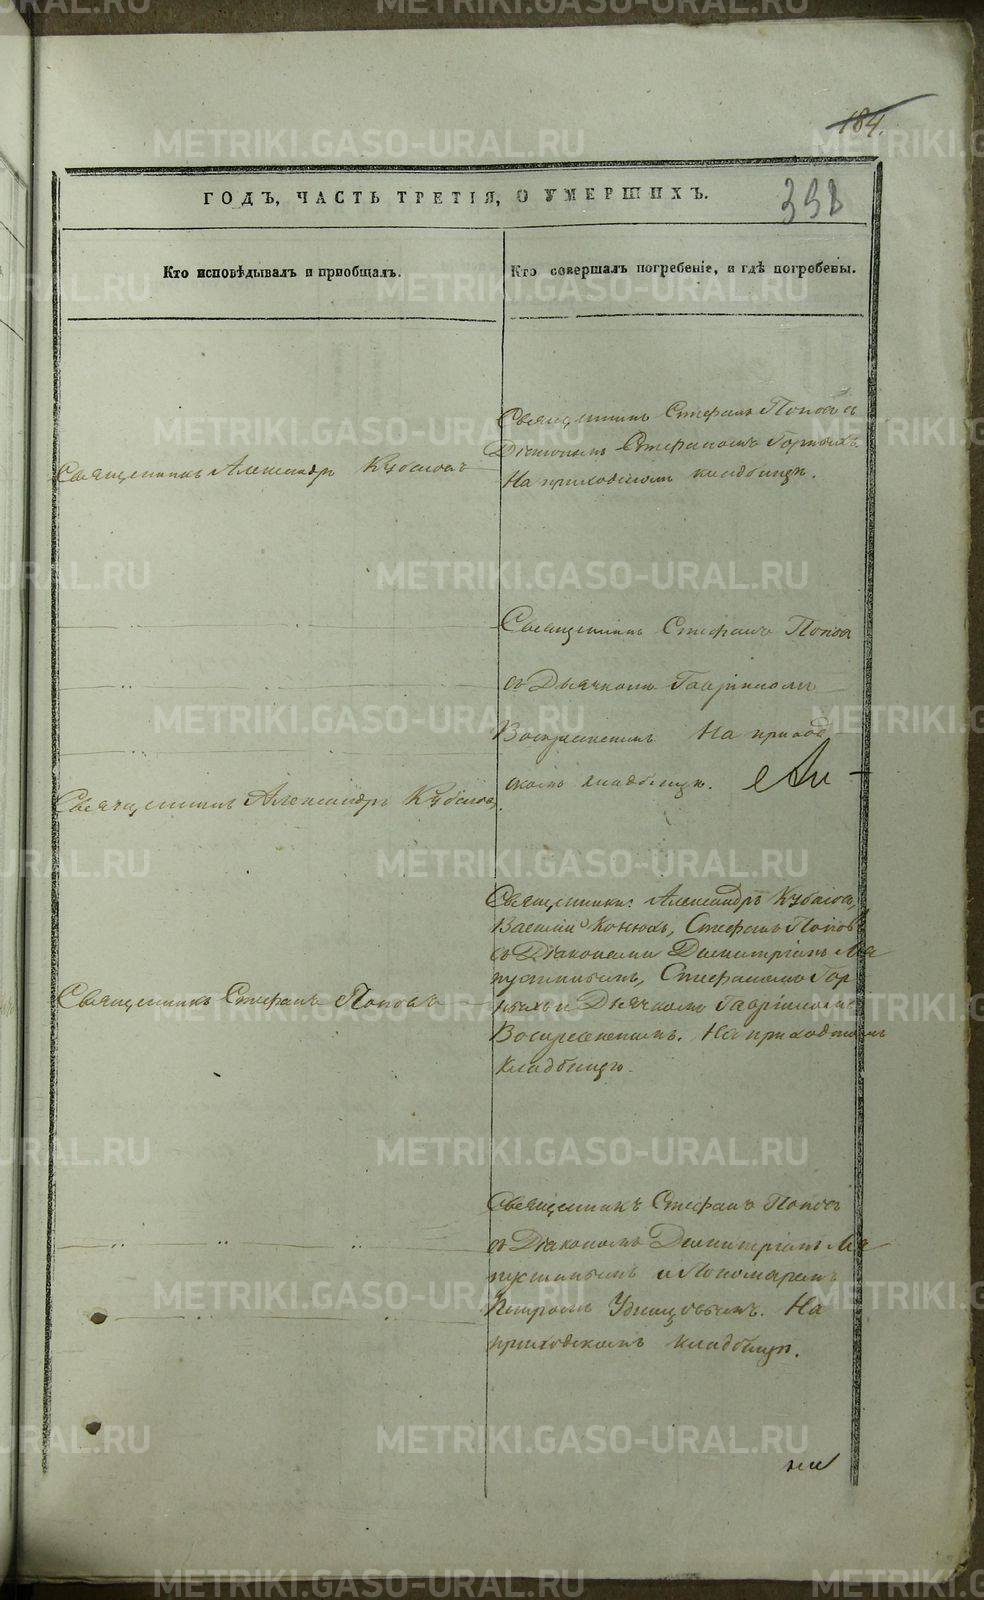 184.
ГОДЪ, ЧАСТЬ ТРЕТІЯ, О УМЕРШИХЪ.
Кто исповѣдывалъ и пріобщалъ.
Кто совершалъ погребеніе, и гдѣ погребены.
Священникъ Александръ Кубасовъ
Священникъ Стефанъ Поповъ съ
Діакономъ Стефаномъ Горныхъ
На приходскомъ кладбищѣ.
Священникъ Стефанъ Поповъ
съ Дьячкомъ Гавріиломъ
Воскресенскимъ На приход
скомъ кладбищѣ.
Священникъ Александръ Кубасовъ
Священники: Александръ Кубасовъ,
Василій Конюхъ, Стефанъ Поповъ
съ Діаконами Димитріемъ Ла
пустинымъ, Стефаномъ Гор
ныхъ и Дьячкомъ Гавріиломъ
Воскресенскимъ. На приходскомъ
кладбищѣ.
Священникъ Стефанъ Поповъ
Священникъ Стефанъ Поповъ
съ Діакономъ Димитріемъ Ла
пустинымъ и Пономаремъ
Петромъ Удинцовымъ. На
приходскомъ кладбищѣ.
METRIKI.GASO-URAL.RU